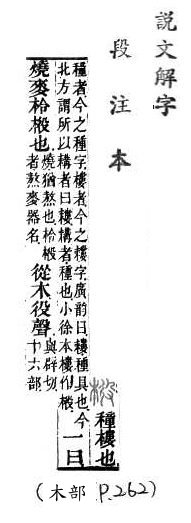 說文解字
段注本
種樓也
種者今之種字樓者今之樓字廣韵曰耬種具也今
北方謂所以耩者曰耬耩者種也小徐本樓作
一曰
燒麥柃也燒猶熬也柃
者熬麥器名從木役聲與辟切
十六部
(木部 P.262)